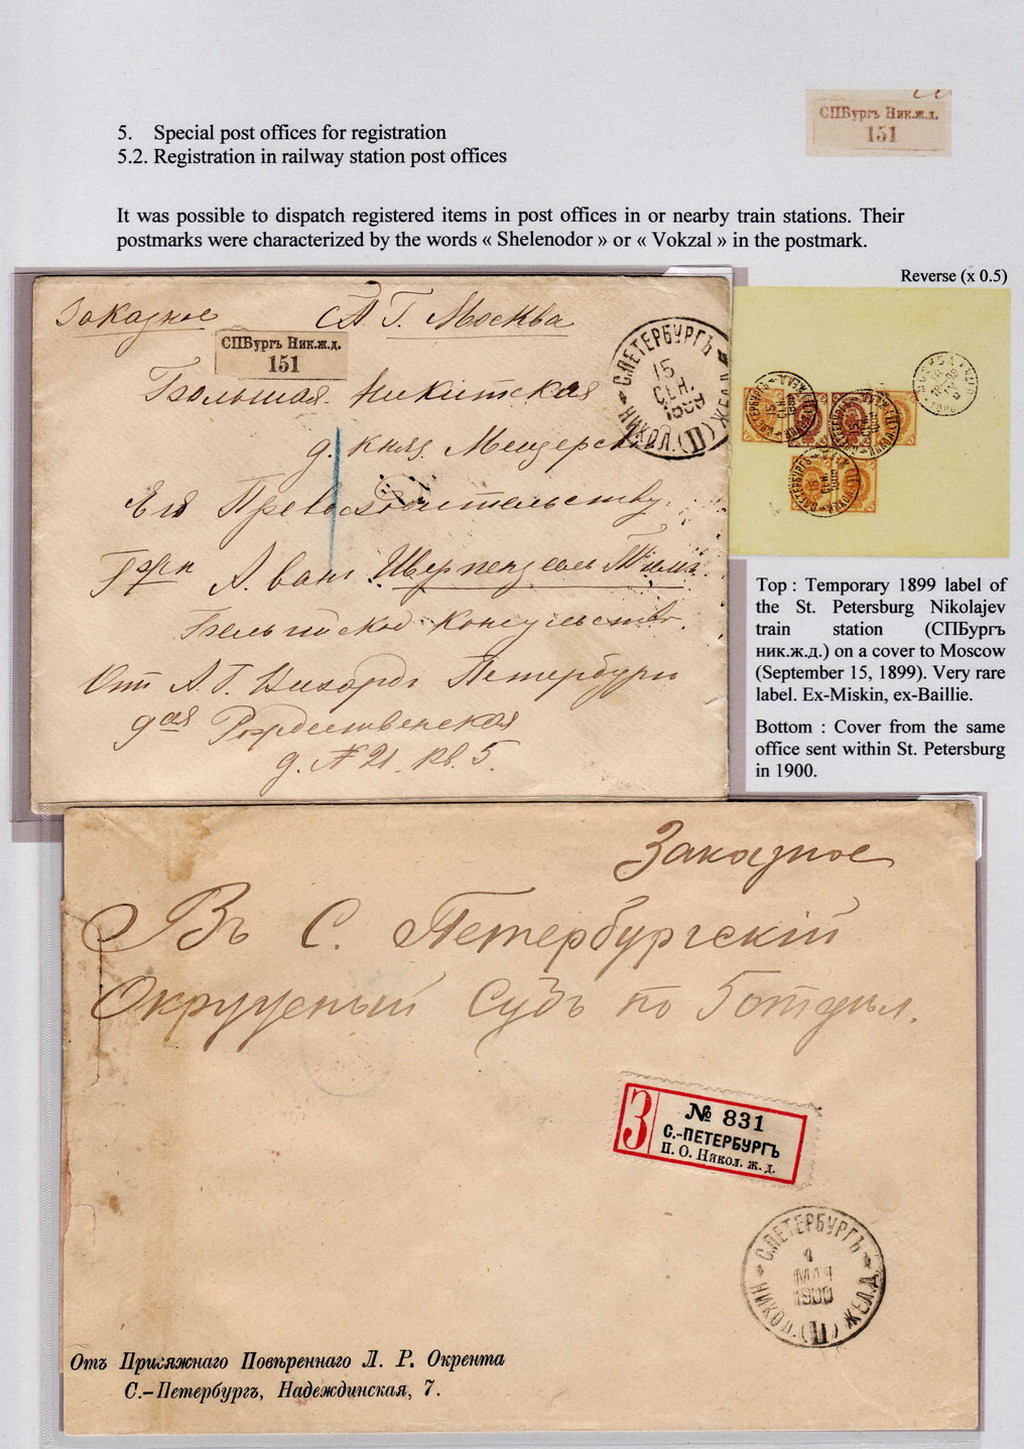 СПБургъ Ник.ж.д.
151
5. Special post offices for registration
5.2. Registration in railway station post offices
It was possible to dispatch registered items in post offices in or nearby train stations. Their
postmarks were characterized by the words « Shelenodor » or « Vokzal » in the postmark.
Reverse (x 0.5)
Заказное
Г. Москва
СПБургъ Ник.ж.д.
151
С.ПЕТЕРБУРГЪ
15
СЕН.
1899
НИКОЛ. (II) ЖЕЛ.Д.
Большая Никитская
д. княз. Мещерск
Его Превосходительству
А. ванъ
Бельгийское Консульство.
Отъ А. Г. Петербургъ
Рождественская
д. № 21. кв. 5.
Top : Temporary 1899 label of
the St. Petersburg Nikolajev
train station (СПБургъ
ник.ж.д.) on a cover to Moscow
(September 15, 1899). Very rare
label. Ex-Miskin, ex-Baillie.
Bottom : Cover from the same
office sent within St. Petersburg
in 1900.
Заказное
Въ С. Петербургскій
Окружный Судъ по 5 отдѣл.
З
№ 831
С.-ПЕТЕРБУРГЪ
П. О. Никол. ж. д.
С.ПЕТЕРБУРГЪ
1900
НИКОЛ. (II) ЖЕЛ.Д.
Отъ Присяжнаго Повѣреннаго Л. Р. Окрента
С.-Петербургъ, Надеждинская, 7.